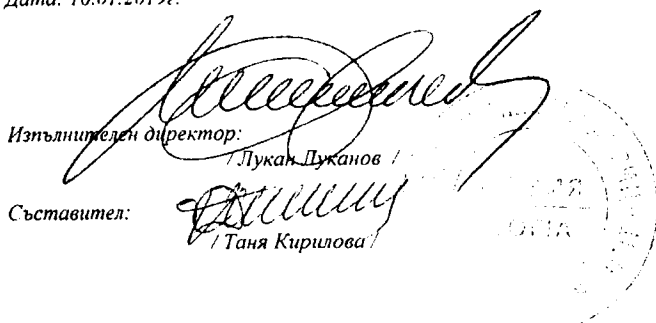 Дата: 10.01.2019г.
Изпълнителен директор:
/ Лукан Луканов /
Съставител:
/ Таня Кирилова /